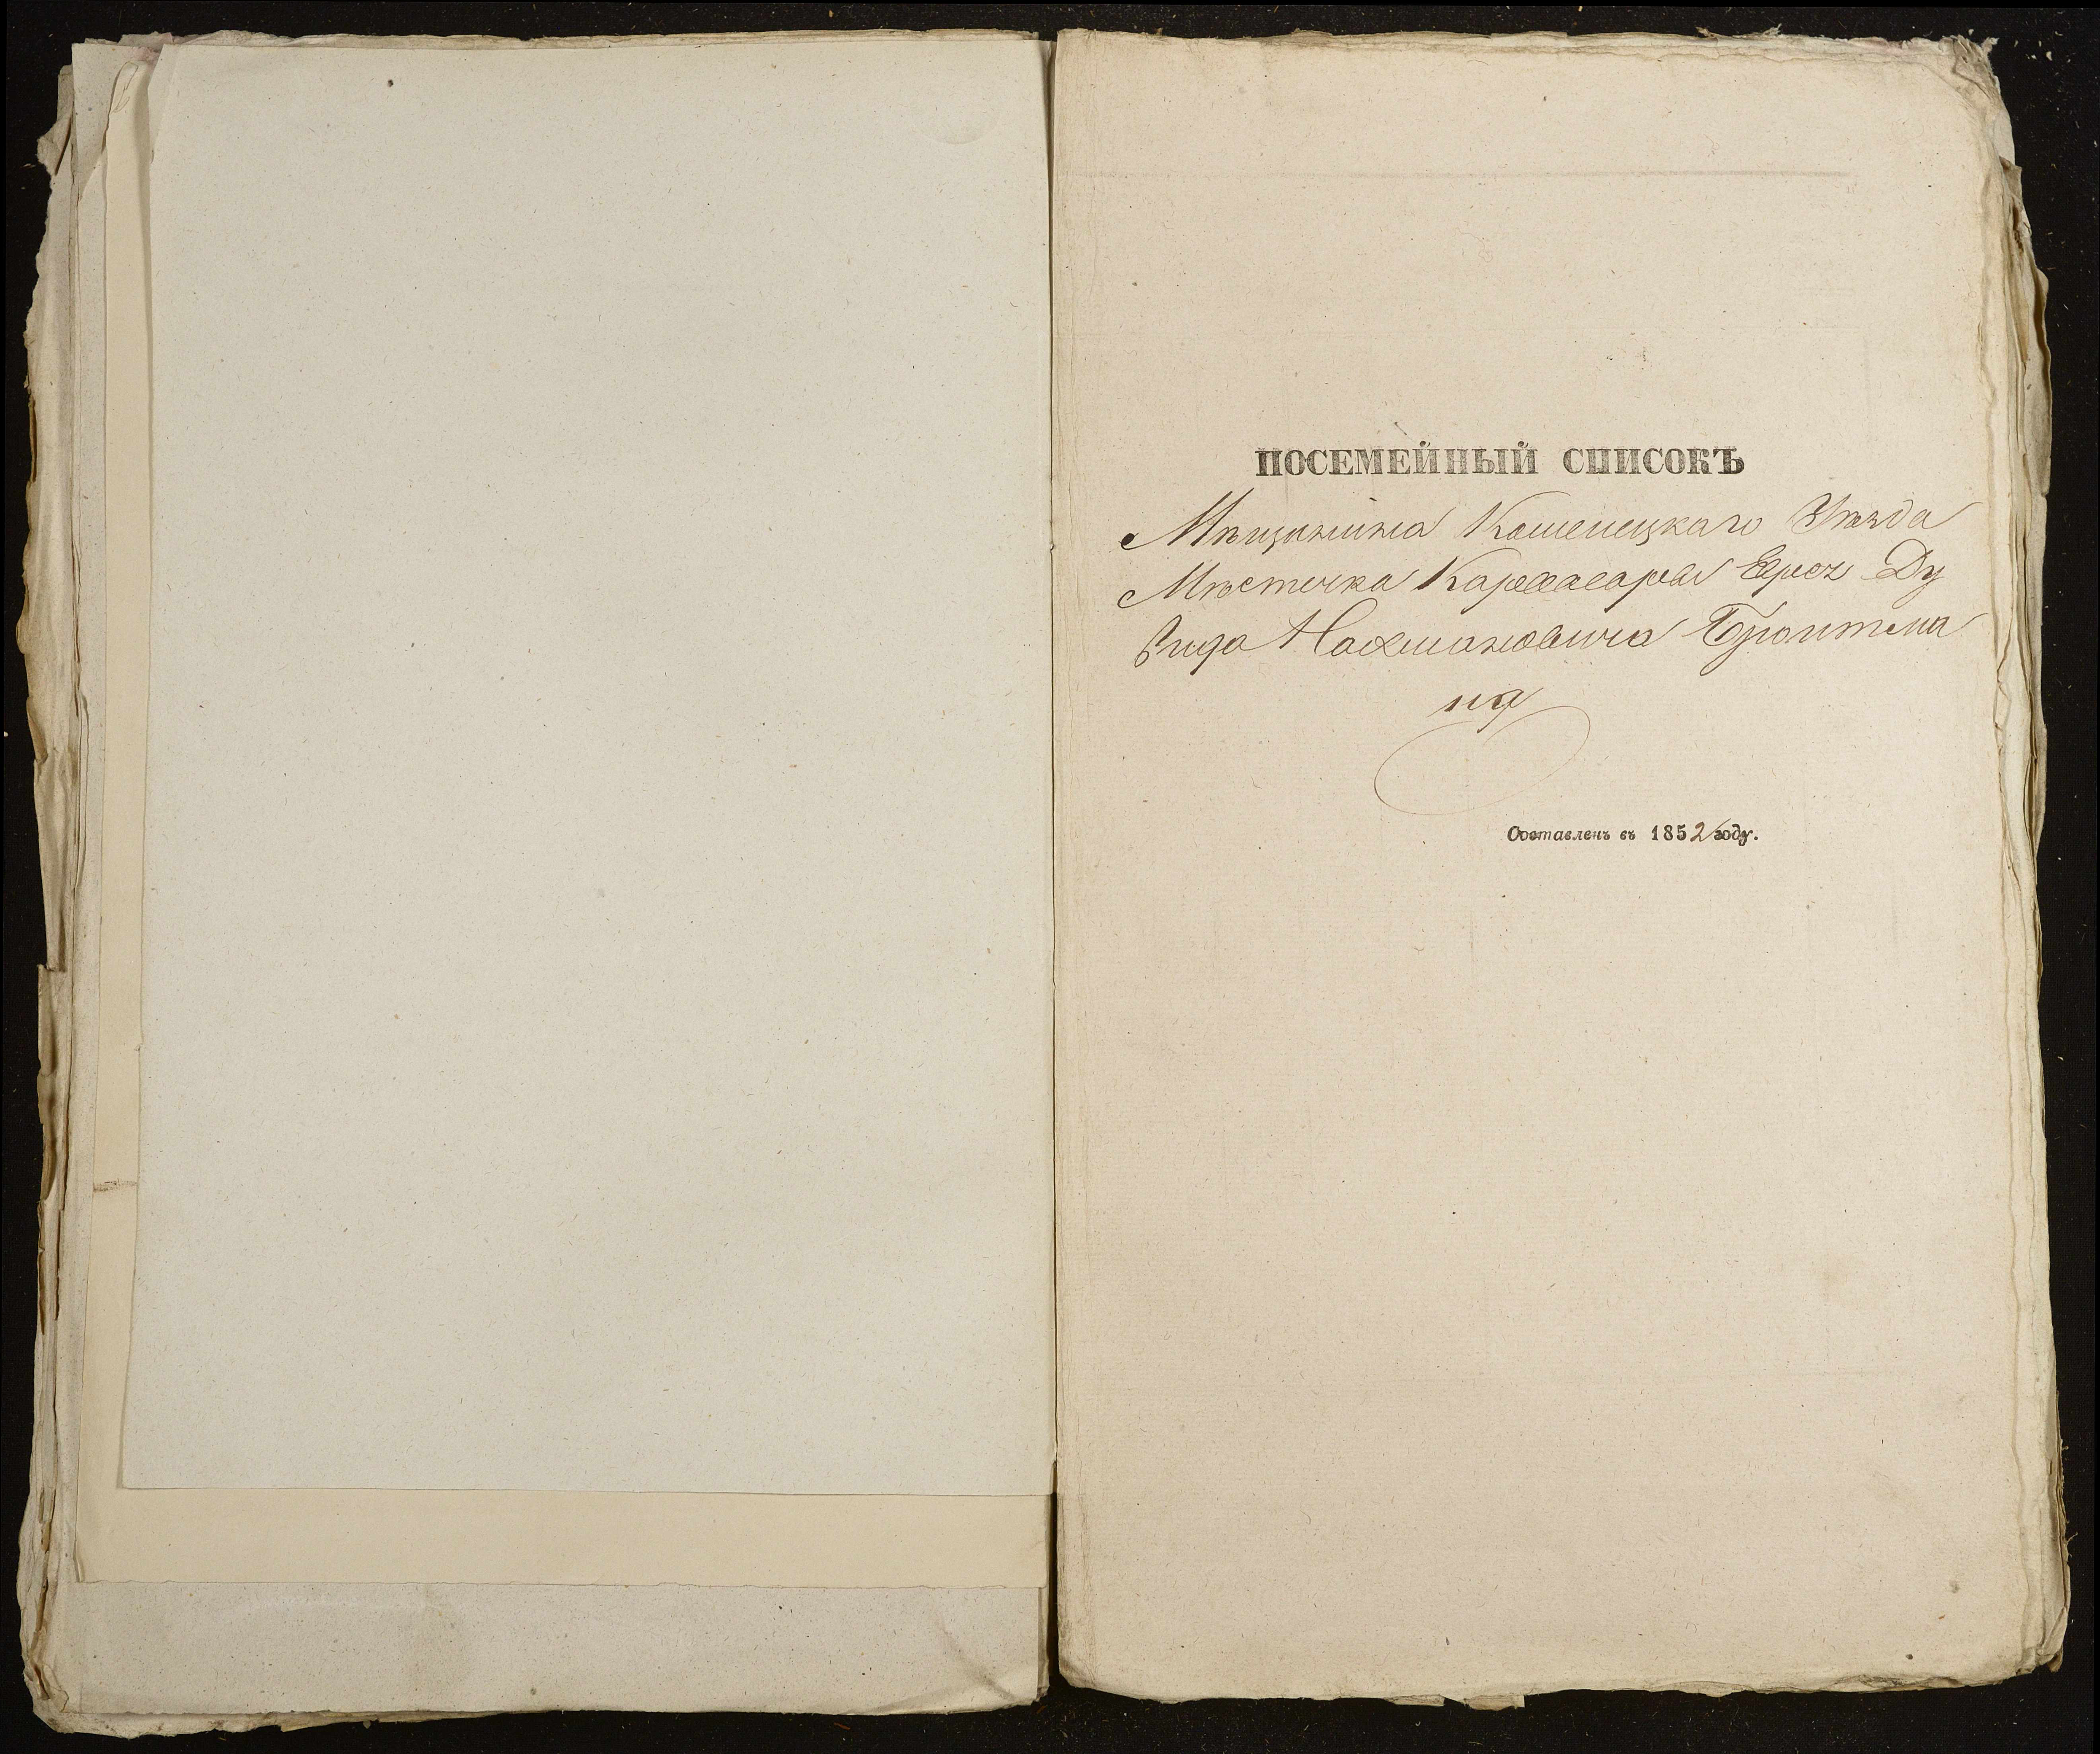 ПОСЕМЕЙНЫЙ СПИСОКЪ
Мѣщанина Каменецкаго Уѣзда
Мѣстечка Карвасары Ду
вида Нахмановича Бройтма
на
Составленъ въ 1852 году.